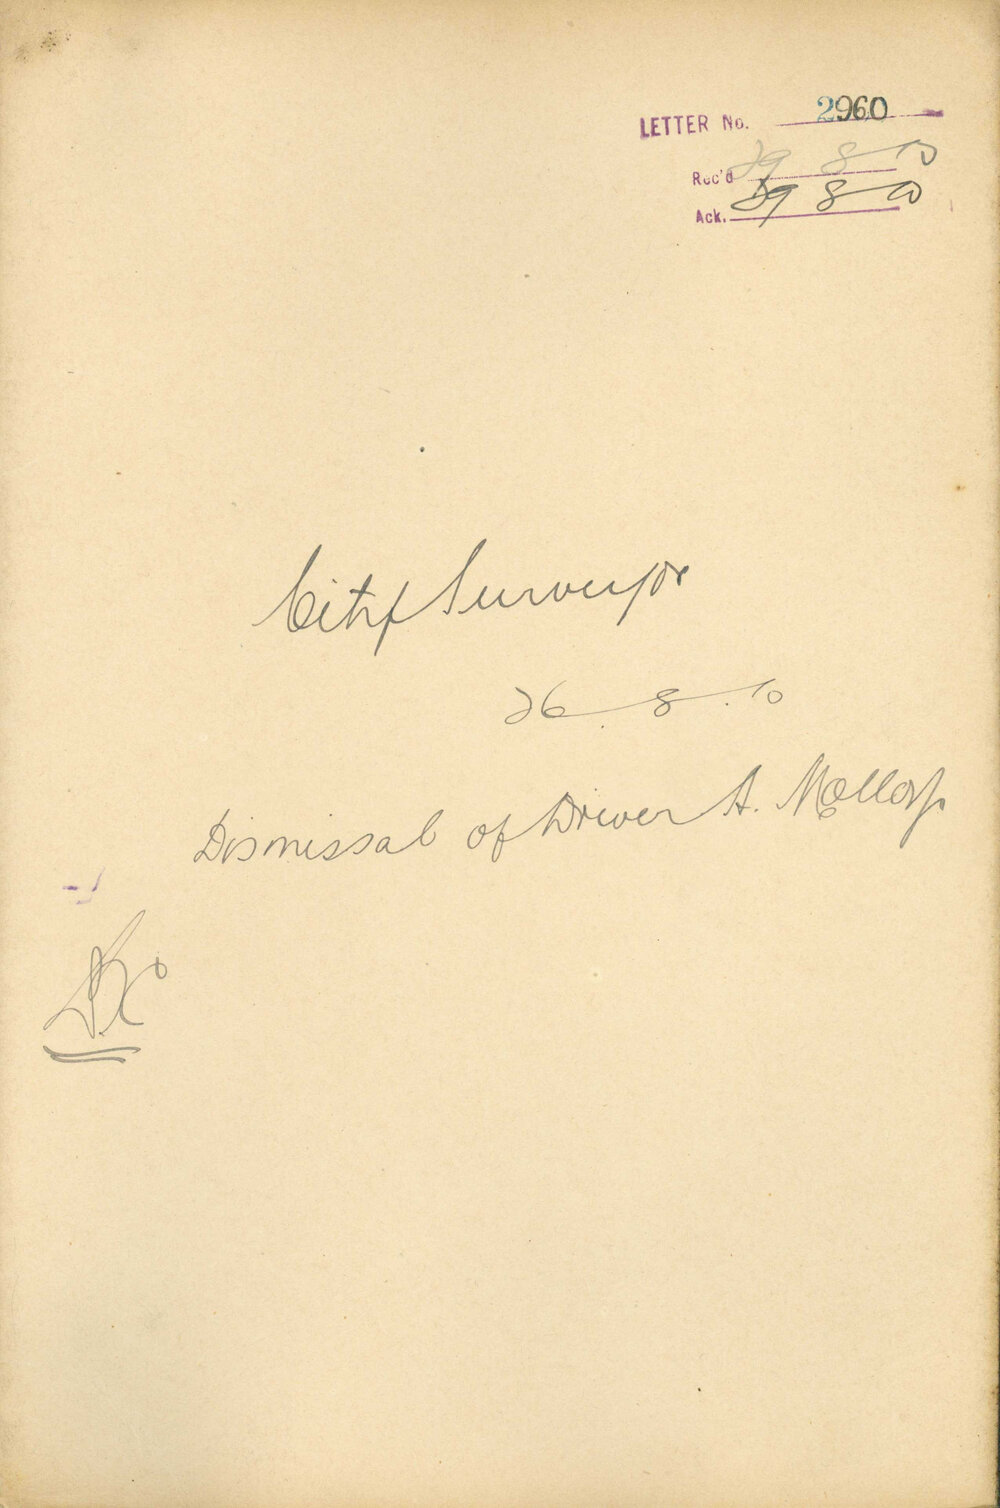 LETTER No. 2960
Rec'd 29 8 10
Ack. 29 8 10
City Surveyor
26. 8. 10
Dismissal of Driver A. Molloy